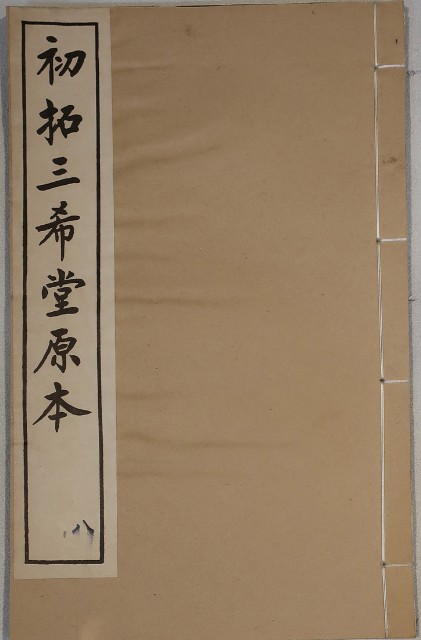 初拓三希堂原本
八